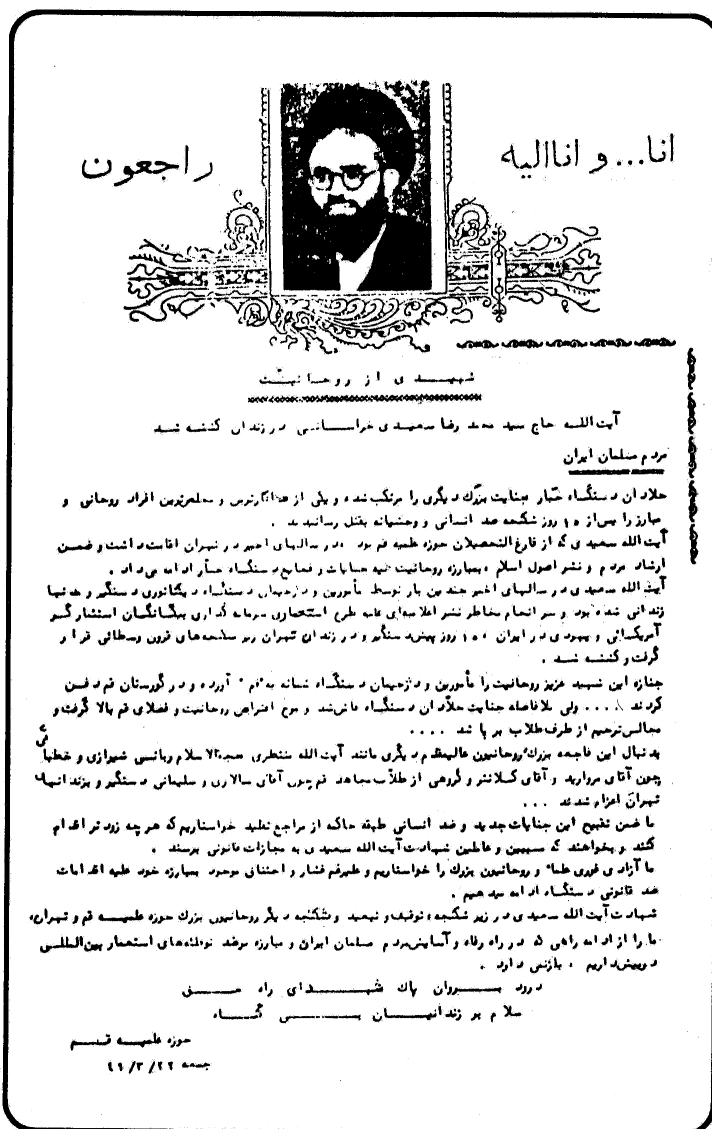 انا... و اناالیه راجعون
شهیدی از روحانیت
آیت‌اللـه حاج سید محمد رضا سعیدی خراسانی در زندان کشته شد
مردم مسلمان ایران
جلادان دستگاه جبار جنایت بزرگ دیگری را مرتکب شده و یکی از فداکارترین و افراد روحانی و
مبارز را پس از ۱۰ روز شکنجه ضد انسانی و وحشیانه بقتل رسانیدند .
آیت الله سعیدی که از فارغ التحصیلان حوزه علمیه قم بود ، در سالهای اخیر در تهران اقامت داشت و ضمن
ارشاد مردم و نشر اصول اسلام ، بمبارزه روحانیت علیه جنایات و فجایع دستگاه جبار ادامه می داد .
آیت الله سعیدی در سالهای اخیر چندین بار توسط مأمورین و دژخیمان دستگاه دیکتاتوری دستگیر و مدتها
زندانی شده بود و سر انجام بخاطر نشر اعلامیه‌ای علیه طرح استعماری سرمایه گذاری بیگانگان استثمارگر
آمریکائی و یهودی در ایران ، ۱۰ روز پیش دستگیر و در زندان تهران زیر شکنجه‌های قرون وسطائی قرار
گرفت و کشته شد .
جنازه این شهید عزیز روحانیت را مأمورین و دژخیمان دستگاه شبانه به "قم" آورده و در گورستان قم دفن
کردند .... ولی بلافاصله جنایت جلادان دستگاه فاش شد و موج اعتراض روحانیت و فضلای قم بالا گرفت و
مجالس ترحیم از طرف طلاب بر پا شد ....
بدنبال این فاجعه بزرگ روحانیون عالیمقام دیگری مانند آیت الله منتظری حجةالاسلام ربانی شیرازی و خطبا
چون آقای مروارید و آقای کلانتر و گروهی از طلاب مجاهد قم چون آقای سالاری و سلیمانی دستگیر و بزندانهای
تهران اعزام شدند ...
ما ضمن تقبیح این جنایات جدید و ضد انسانی طبقه حاکمه از مراجع تقلید خواستاریم که هر چه زودتر اقدام
کنند و بخواهند که مسببین و عاملین شهادت آیت الله سعیدی به مجازات قانونی برسند .
ما آزادی فوری علماء و روحانیون بزرگ را خواستاریم و علیرغم فشار و اختناق موجود بمبارزه خود علیه اقدامات
ضد قانونی دستگاه ادامه میدهیم .
شهادت آیت الله سعیدی در زیر شکنجه ، توقیف و تبعید و شکنجه دیگر روحانیون بزرگ حوزه علمیـه قم و تهران،
ما را از ادامه راهی که در راه رفاه و آسایش مردم مسلمان ایران و مبارزه برضد توطئه‌های استعمار بین‌المللی
در پیش داریم ، باز نمی دارد .
درود بـروان پاك شهـدای راه حـق
سلام بر زندانیـان بـی گنـاه
حوزه علمیـه قـم
جمعه ۲۲ / ۳ / ۴۹